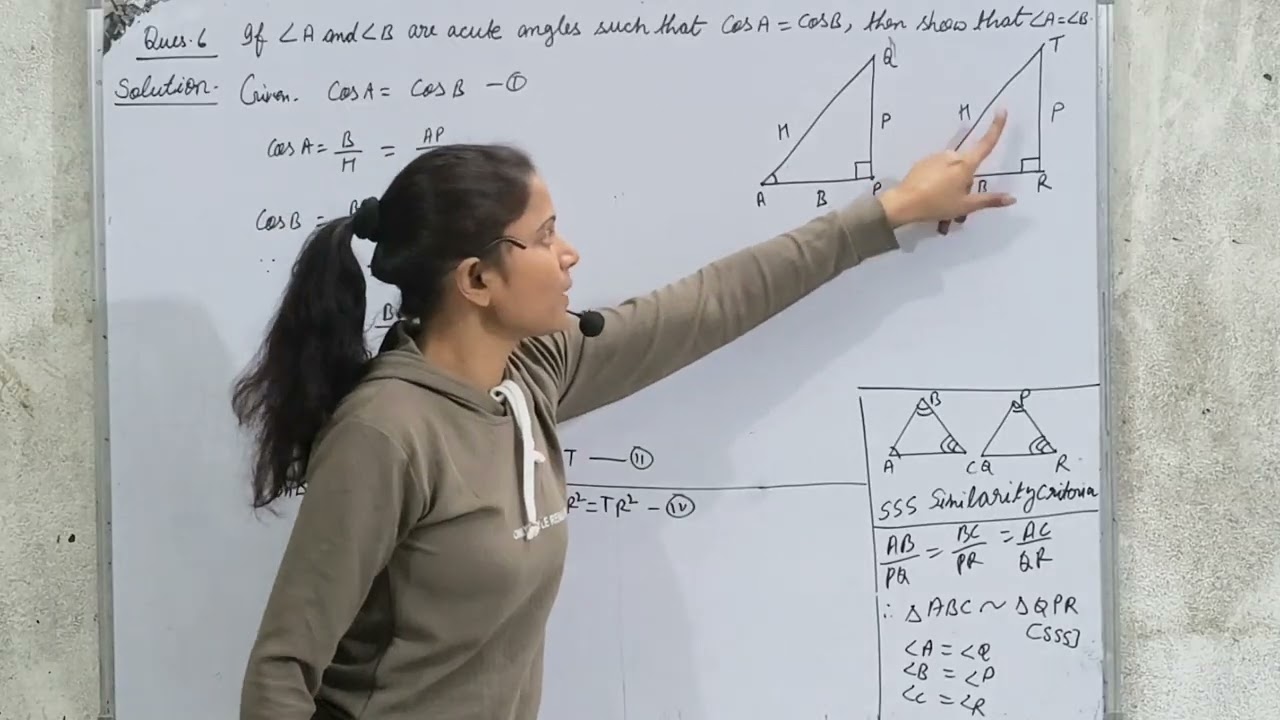 Ques.6 If ∠A and ∠B are acute angles such that cosA = cosB, then show that ∠A=∠B.
Solution. Given. CosA = CosB —Ⓘ
CosA = B/H = AP
CosB =
∴
Q
H
P
A
B
P
T
H
P
B
R
T —Ⓘⓘ
R²=TR² —ⒾⓋ
B
P
A
C
Q
R
SSS Similarity Criteria
AB/PQ = BC/PR = AC/QR
∴ △ABC ~ △QPR
[SSS]
∠A = ∠Q
∠B = ∠P
∠C = ∠R